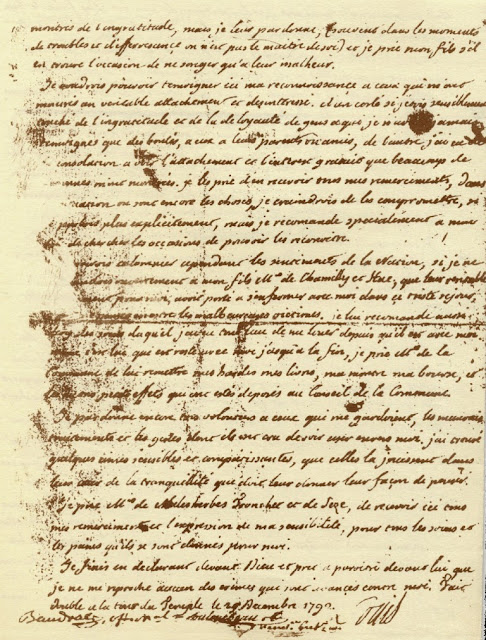 montrés de l'ingratitude, mais je leur pardonne, (souvent dans les moments
de troubles et d'efferessence on n'est pas le maitre de soi) et je prie mon fils s'il
en trouve l'occasion de ne songer qu'a leur malheur.
Je voudrois pouvoir temoigner ici ma reconnoissance a ceux qui m'ont
montrés un veritable attachement et desinteressé. d'un coté si je suis sensiblement
touché de l'ingratitude et de la deloyauté de gens a qui je n'avois jamais
temoignés que des bontés, a eux a leurs parents ou amis, de l'autre j'ai eu de
consolation a voir l'attachement et l'interest gratuit que beaucoup de
m'ont montrés. je les prie d'en recevoir tous mes remerciments, dans
la situation ou sont encore les choses, je craindrois de les compromettre, si
je parlois plus explicitement, mais je recomande specialement a mon
de chercher les occasions de pouvoir les reconnoitre.
calomnier cependant les sentiments de la Nation, si je ne
recomandois ouvertement a mon fils Mrs de Chamilly et Hue, que leur veritable
attachement pour moi, avoit porté a s'enfermer avec moi dans ce triste sejour,
malheureuses victimes, je leur recomande aussi
des soins duquel j'ai eu tout lieu de me louer depuis qu'il est avec moi
comme c'est lui qui est resté avec moi jusqu'a la fin, je prie Mrs de la
Commune de lui remettre mes hardes mes livres, ma montre ma bourse, et
les petits effets qui ont estés deposés au Conseil de la Commune.
Je pardonne encore tres volontiers a ceux qui me gardoient, les mauvais
traitements et les gestes dont ils ont cru devoir user envers moi, j'ai trouvé
quelques ames sensibles et compatissantes, que celles la jouissent dans
leur cœur de la tranquillité que doit leur donner leur façon de penser.
Je prie Mrs de Malesherbes Tronchet et de Seze, de recevoir ici tous
mes remerciments et l'expression de ma sensibilité, pour tous les soins et
les peines qu'ils se sont donnés pour moi.
Je finis en declarant devant Dieu et pret a paroitre devant lui que
je ne me reproche aucun des crimes qui sont avancés contre moi. Fait
double a la tour du Temple le 25 Decembre 1792.
Louis
Baudrais